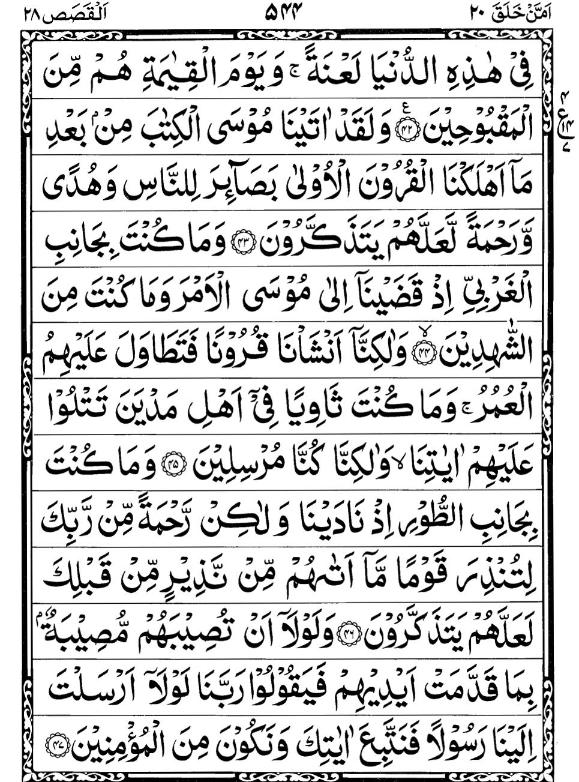 اَمَّنْ خَلَقَ ۲۰ ۵۴۴ اَلْقَصَص ۲۸
فِیْ هٰذِهِ الدُّنْیَا لَعْنَةً ۚ وَیَوْمَ الْقِیٰمَةِ هُمْ مِّنَ
الْمَقْبُوْحِیْنَ ﴿۴۲﴾ ع وَلَقَدْ اٰتَیْنَا مُوْسَی الْكِتٰبَ مِنْۢ بَعْدِ
۴ ع ۱۴ ۷
مَاۤ اَهْلَكْنَا الْقُرُوْنَ الْاُوْلٰی بَصَآىِٕرَ لِلنَّاسِ وَهُدًی
وَّرَحْمَةً لَّعَلَّهُمْ یَتَذَكَّرُوْنَ ﴿۴۳﴾ وَمَا كُنْتَ بِجَانِبِ
الْغَرْبِیِّ اِذْ قَضَیْنَاۤ اِلٰی مُوْسَی الْاَمْرَ وَمَا كُنْتَ مِنَ
الشّٰهِدِیْنَ ﴿۴۴﴾ۙ وَلٰكِنَّاۤ اَنْشَاْنَا قُرُوْنًا فَتَطَاوَلَ عَلَیْهِمُ
الْعُمُرُ ۚ وَمَا كُنْتَ ثَاوِیًا فِیْۤ اَهْلِ مَدْیَنَ تَتْلُوْا
عَلَیْهِمْ اٰیٰتِنَا ۙ وَلٰكِنَّا كُنَّا مُرْسِلِیْنَ ﴿۴۵﴾ وَمَا كُنْتَ
بِجَانِبِ الطُّوْرِ اِذْ نَادَیْنَا وَلٰكِنْ رَّحْمَةً مِّنْ رَّبِّكَ
لِتُنْذِرَ قَوْمًا مَّاۤ اَتٰىهُمْ مِّنْ نَّذِیْرٍ مِّنْ قَبْلِكَ
لَعَلَّهُمْ یَتَذَكَّرُوْنَ ﴿۴۶﴾ وَلَوْلَاۤ اَنْ تُصِیْبَهُمْ مُّصِیْبَةٌۢ
بِمَا قَدَّمَتْ اَیْدِیْهِمْ فَیَقُوْلُوْا رَبَّنَا لَوْلَاۤ اَرْسَلْتَ
اِلَیْنَا رَسُوْلًا فَنَتَّبِعَ اٰیٰتِكَ وَنَكُوْنَ مِنَ الْمُؤْمِنِیْنَ ﴿۴۷﴾